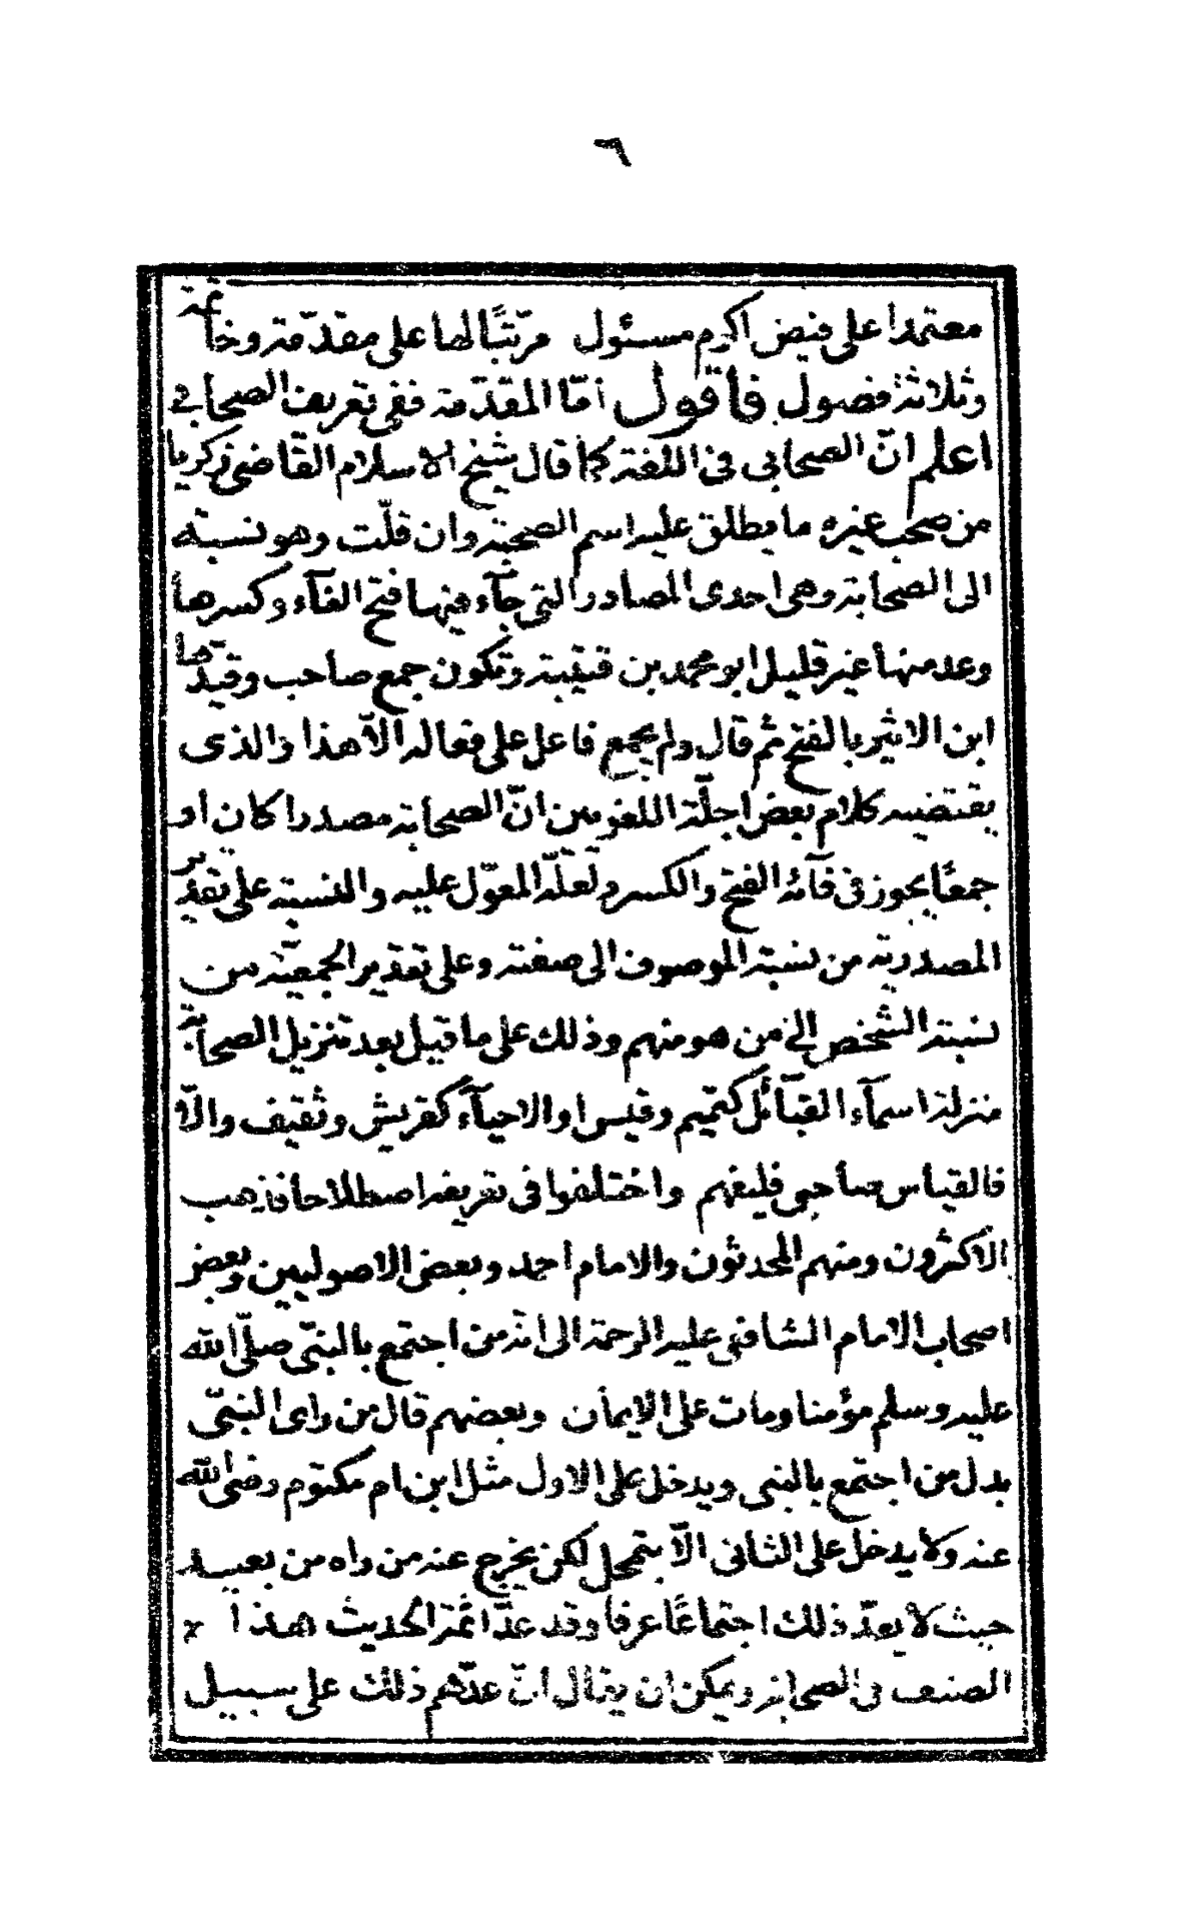 ٦
معتمدا على فيض اكرم مسئول مرتبًا لها على مقدّمة وخاتمة
وثلاثة فصول فأقول أمّا المقدّمة ففى تعريف الصحابي
اعلم انّ الصحابى فى اللغة كما قال شيخ الاسلام القاضى زكريا
من صحب غيره ما يطلق عليه اسم الصحبة وان قلّت وهو نسبته
الى الصحابة وهى احدى المصادر التى جآء فيها فتح الفآء وكسرها
وعد منها غير قليل ابو محمد بن قتيبة وتكون جمع صاحب وقيّدها
ابن الاثير بالفتح ثم قال ولم يجمع فاعل على فعالة الاّ هذا والذى
يقتضيه كلام بعض اجلّة اللغويين انّ الصحابة مصدرا كان او
جمعًا يجوز فى فآئه الفتح والكسر ولعلّه المعوّل عليه والنسبة على تقدير
المصدرية من نسبة الموصوف الى صفته وعلى تقدير الجمعيّة من
نسبة الشخص الى من هو منهم وذلك على ما قيل بعد تنزيل الصحابة
منزلة اسمآء القبآئل كتميم وقيس او الاحيآء كقريش وثقيف والاّ
فالقياس صاحبى فليفهم واختلفوا فى تعريفه اصطلاحا فذهب
الاكثرون ومنهم المحدثون والامام أحمد وبعض الاصوليين وبعض
اصحاب الامام الشافعى عليه الرحمة الى انه من اجتمع بالنبّى صلّى الله
عليه وسلم مؤمنا ومات على الايمان وبعضهم قال من راى النبىّ
بدل من اجتمع بالنبى ويدخل على الاول مثل ابن ام مكتوم رضى الله
عنه ولا يدخل على الثانى الاّ بتمحل لكن يخرج عنه من راه من بعيد
حيث لا يعدّ ذلك اجتماعًا عرفا وقد عدّ ائمة الحديث هذا
الصنف فى الصحابة ويمكن ان يقال انّ عدّهم ذلك على سبيل